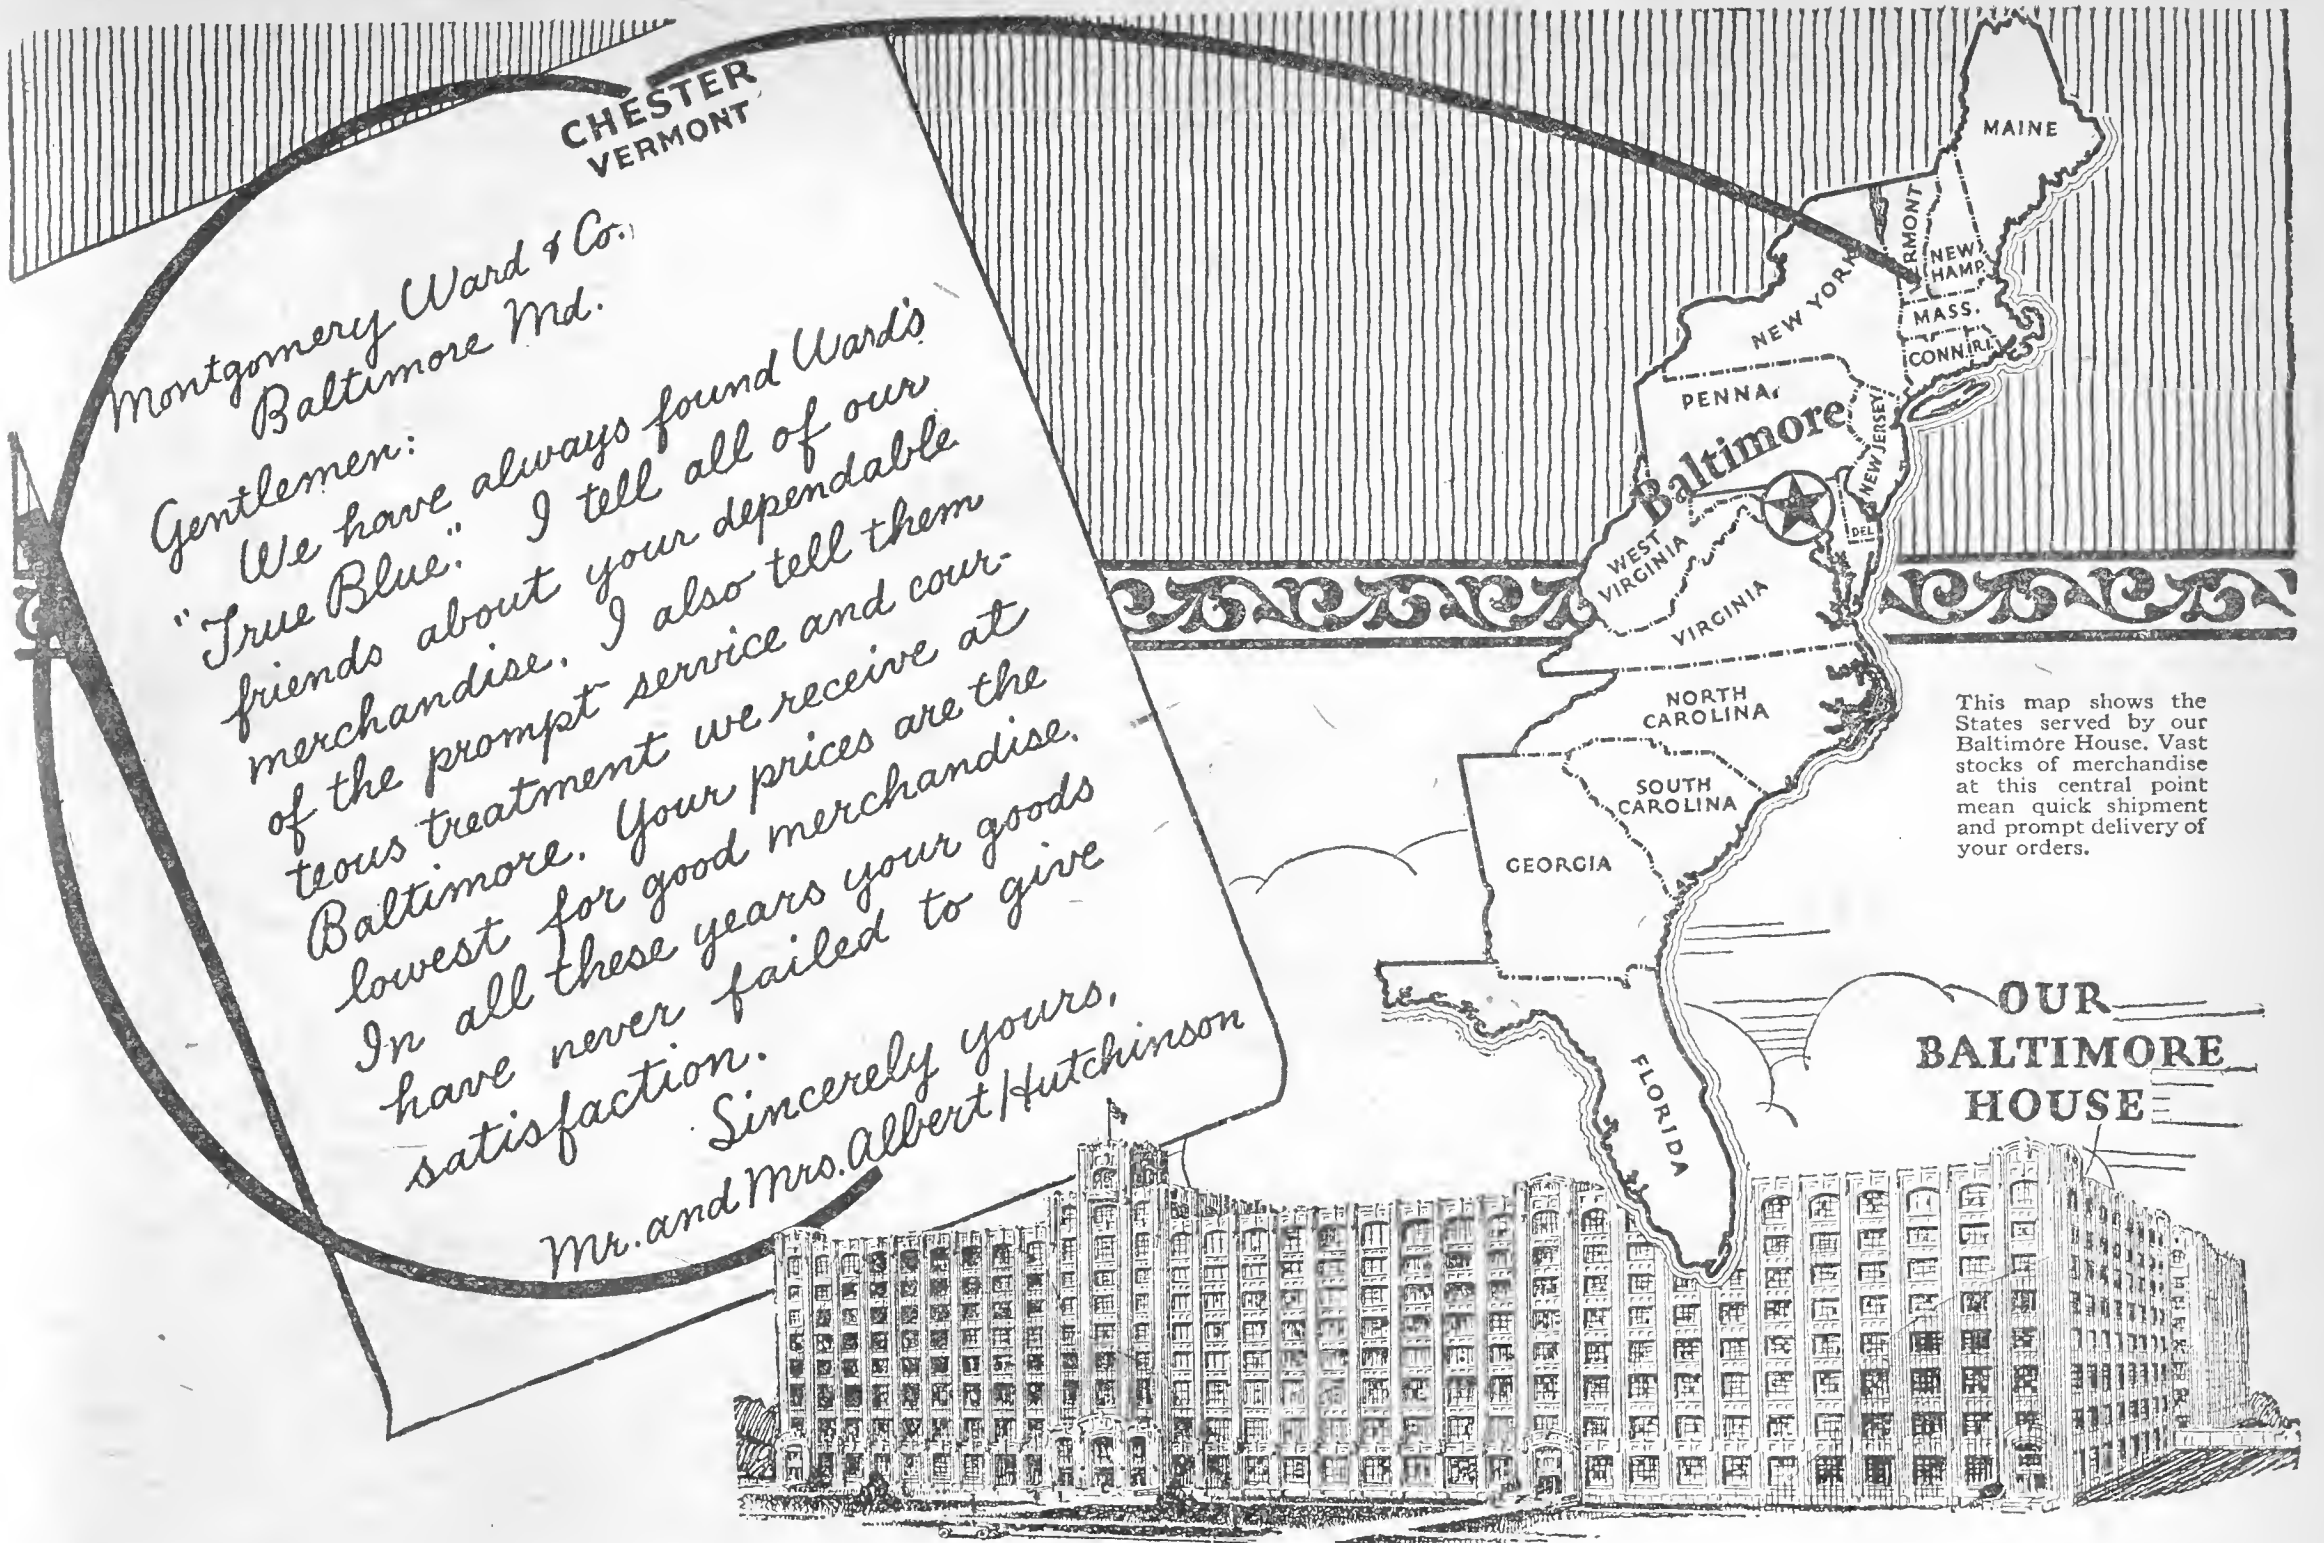 CHESTER
VERMONT
Montgomery Ward & Co.,
Baltimore Md.
Gentlemen:
We have always found Ward's
"True Blue." I tell all of our
friends about your dependable
merchandise. I also tell them
of the prompt service and cour-
teous treatment we receive at
Baltimore. Your prices are the
lowest for good merchandise.
In all these years your goods
have never failed to give
satisfaction.
Sincerely yours,
Mr. and Mrs. Albert Hutchinson
MAINE
VERMONT
NEW
HAMP.
NEW YORK
MASS.
CONN.
R.I.
PENNA.
NEW JERSEY
Baltimore
DEL
WEST
VIRGINIA
VIRGINIA
NORTH
CAROLINA
SOUTH
CAROLINA
GEORGIA
FLORIDA
This map shows the
States served by our
Baltimore House. Vast
stocks of merchandise
at this central point
mean quick shipment
and prompt delivery of
your orders.
OUR
BALTIMORE
HOUSE